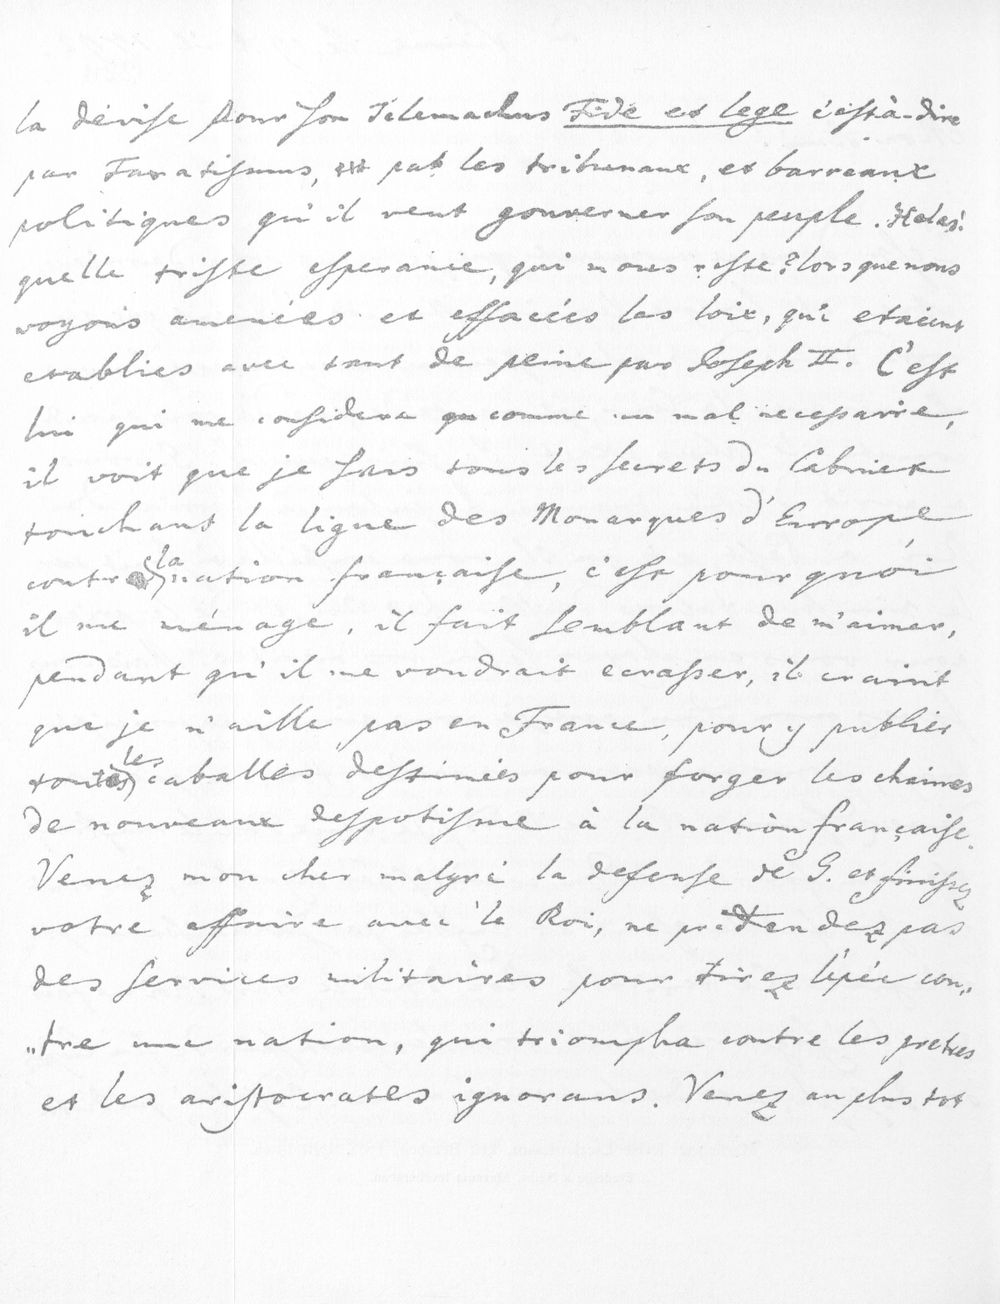 la dévise pour son Télemachus Fide et lege c'est à-dire
par Fanatisums, et pat les tribunaux, et barreaux
politiques qu'il veut gouverner son peuple. Helas!
quelle triste esperance, qui nous reste? lorsque nous
voyons amenées et effacées les loix, qui etaient
etablies avec tant de peine par Joseph II. C'est
lui qui me considere comme un mal necessaire,
il voit que je sais tous les secrets du Cabinet
touchant la ligue des Monarques d'Europe
contre la nation française, c'est pourquoi
il me ménage, il fait semblant de m'aimer,
pendant qu'il me voudrait ecrasser, il craint
que je n'aille pas en France, pour y publier
toutes les caballes destinées pour forger les chaines
de nouveaux despotisme à la nation française.
Venez mon cher malgré la defense de G. et finissez
votre affaire avec le Roi, ne prétendez pas
des services militaires pour tirez l'épée con„
„tre une nation, qui triompha contre les pretres
et les aristocrates ignorans. Venez au plus tot